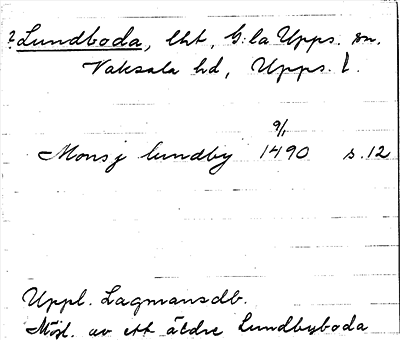 ? Lundboda, lht, G:la Upps. sn.
Vaksala hd, Upps. l.
9/1
Mons j lundby 1490 s. 12
Uppl. Lagmansdb.
Möjl. av ett äldre Lundbyboda